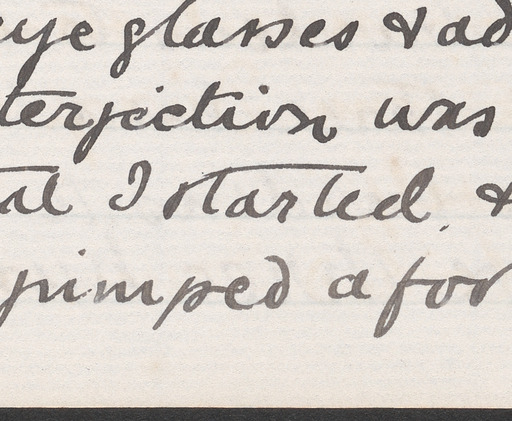 eye glasses & ad
terjection was
al I started, &
pimped a for